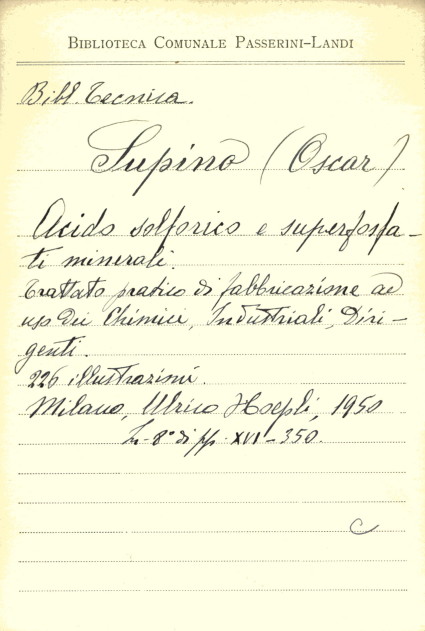 BIBLIOTECA COMUNALE PASSERINI-LANDI
Bibl. Tecnica.
Supino (Oscar)
Acido solforico e superfosfa-
ti minerali.
Trattato pratico di fabbricazione ad
uso dei Chimici, Industriali, Diri-
genti.
226 illustrazioni.
Milano, Ulrico Hoepli, 1950
In-8° di pp. XVI-350.
C